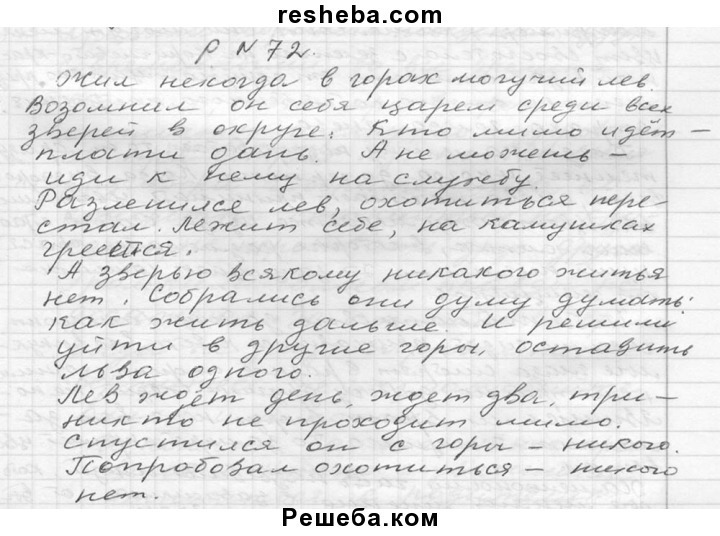 resheba.com
р N 72.
Жил некогда в горах могучий лев.
Возомнил он себя царем среди всех
зверей в округе: Кто мимо идёт –
плати дань. А не можешь –
иди к нему на службу.
Разленился лев, охотиться пере-
стал. Лежит себе, на камушках
греется.
А зверью всякому никакого житья
нет. Собрались они думу думать:
как жить дальше. И решили
уйти в другие горы, оставить
льва одного.
Лев ждёт день, ждет два, три –
никто не проходит мимо.
Спустился он с горы – никого.
Попробовал охотиться – никого
нет.
Решеба.ком